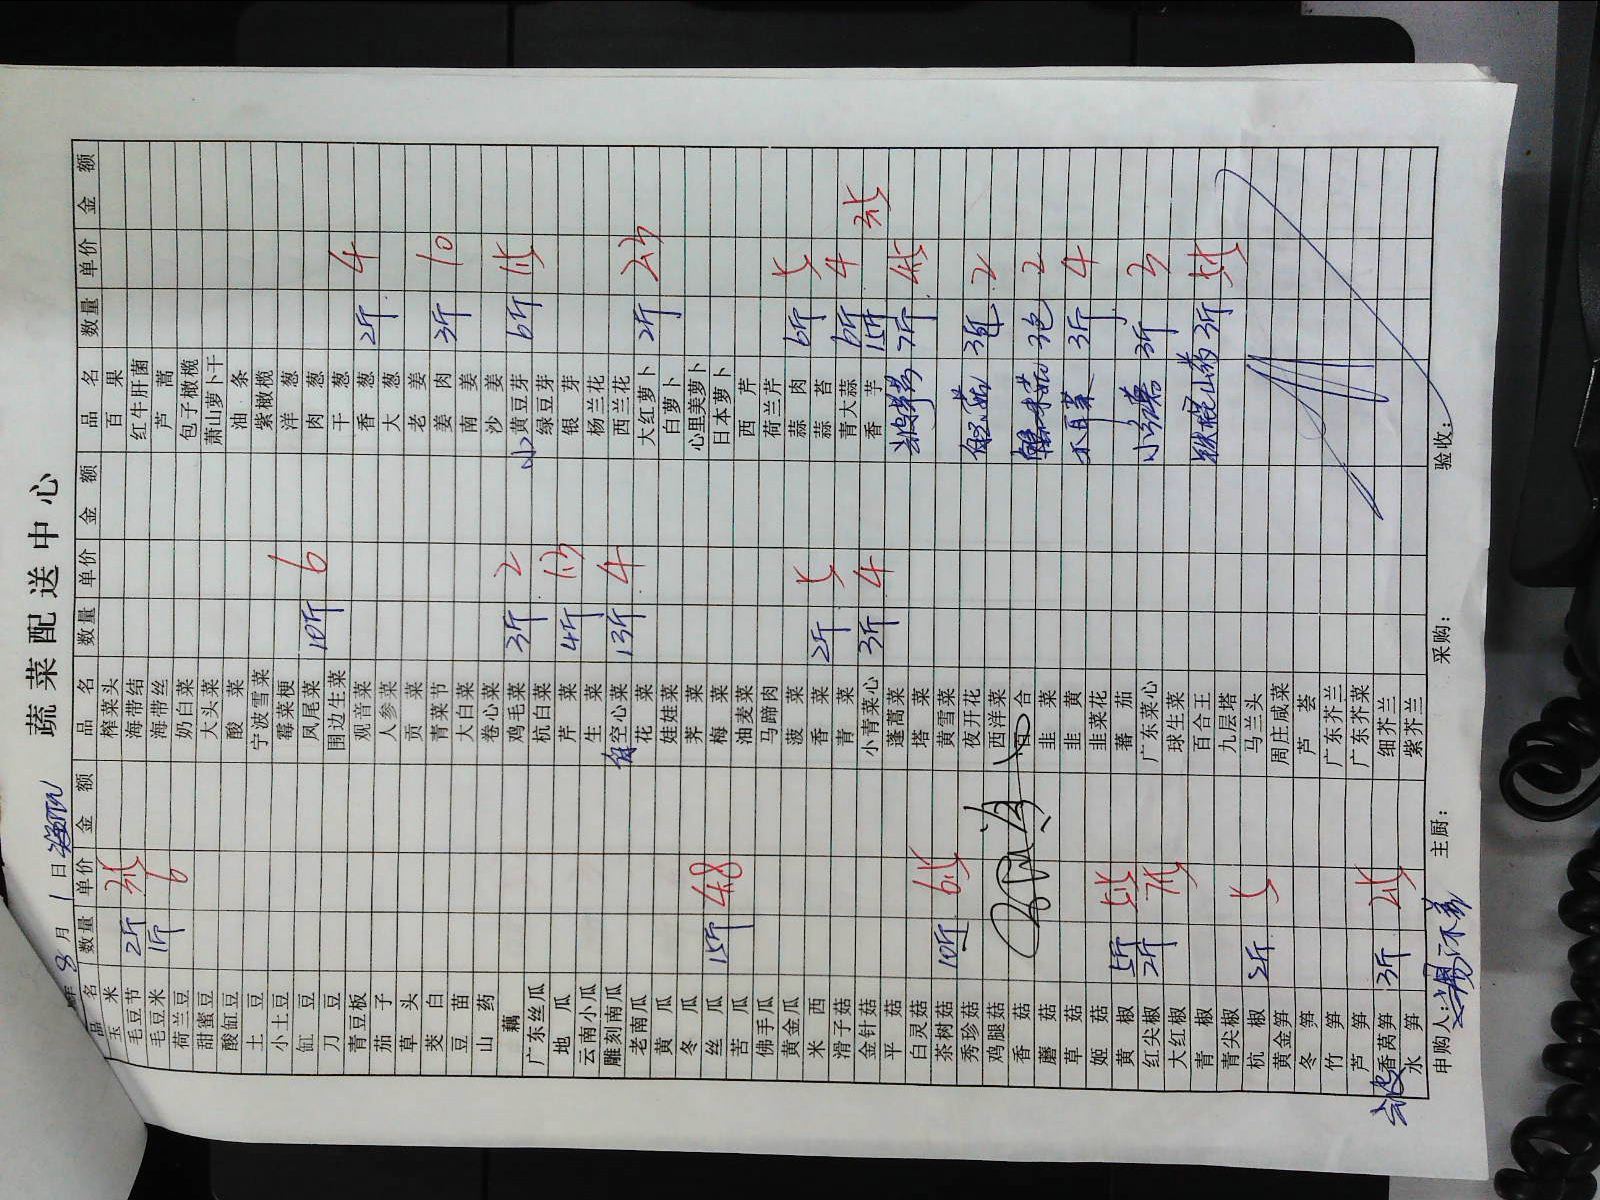 蔬菜配送中心
8月1日
品名 数量 单价 金额 品名 数量 单价 金额 品名 数量 单价 金额
玉米 榨菜头 百果
毛豆节 2斤 3.5 海带结 红牛肝菌
毛豆米 1斤 6 海带丝 芦蒿
荷兰豆 奶白菜 包子橄榄
甜蜜豆 大头菜 萧山萝卜干
酸缸豆 酸菜 油条
土豆 宁波雪菜 紫橄榄
小土豆 霉菜梗 洋葱
缸豆 凤尾菜 10斤 6 肉葱
刀豆 围边生菜 干葱
青豆板 观音菜 香葱 2斤 4
茄子 人参菜 大葱
草头 贡菜 老姜
茭白 青菜节 姜肉 3斤 10
豆苗 大白菜 南姜
山药 卷心菜 沙姜
藕 鸡毛菜 3斤 2 小黄豆芽 6斤 1.5
广东丝瓜 杭白菜 绿豆芽
地瓜 芹菜 4斤 1.3 银芽
云南小瓜 生菜 杨兰花
雕刻南瓜 空心菜 13斤 4 西兰花
老南瓜 花菜 大红萝卜 2斤 2.3
黄瓜 娃娃菜 白萝卜
冬瓜 荠菜 心里美萝卜
丝瓜 15斤 4.8 梅菜 日本萝卜
苦瓜 油麦菜 西芹
佛手瓜 马蹄肉 荷兰芹
黄金瓜 菠菜 蒜肉 6斤 5
米西 香菜 2斤 5 蒜苔
滑子菇 青菜 青大蒜 6斤 4
金针菇 小青菜心 3斤 4 香芋 15斤 3.5
平菇 蓬蒿菜 7斤 4.5
白灵菇 塔菜
茶树菇 10斤 6.5 黄雪菜
秀珍菇 夜开花 白玉菇 3包 2
鸡腿菇 西洋菜
香菇 百合 蟹味菇 3包 2
蘑菇 韭菜
草菇 韭黄 木耳菜 3斤 4
姬菇 韭菜花
黄椒 5斤 5.5 蕃茄
红尖椒 2斤 7.5 广东菜心 3斤 3
大红椒 球生菜
青椒 百合王 铁棍山药 3斤 5.5
青尖椒 九层塔
杭椒 2斤 5 马兰头
黄金笋 周庄咸菜
冬笋 芦荟
竹笋 广东芥兰
芦笋 广东芥菜
去皮香莴笋 3斤 2.5 细芥兰
水笋 紫芥兰
申购人: 主厨: 采购: 验收: